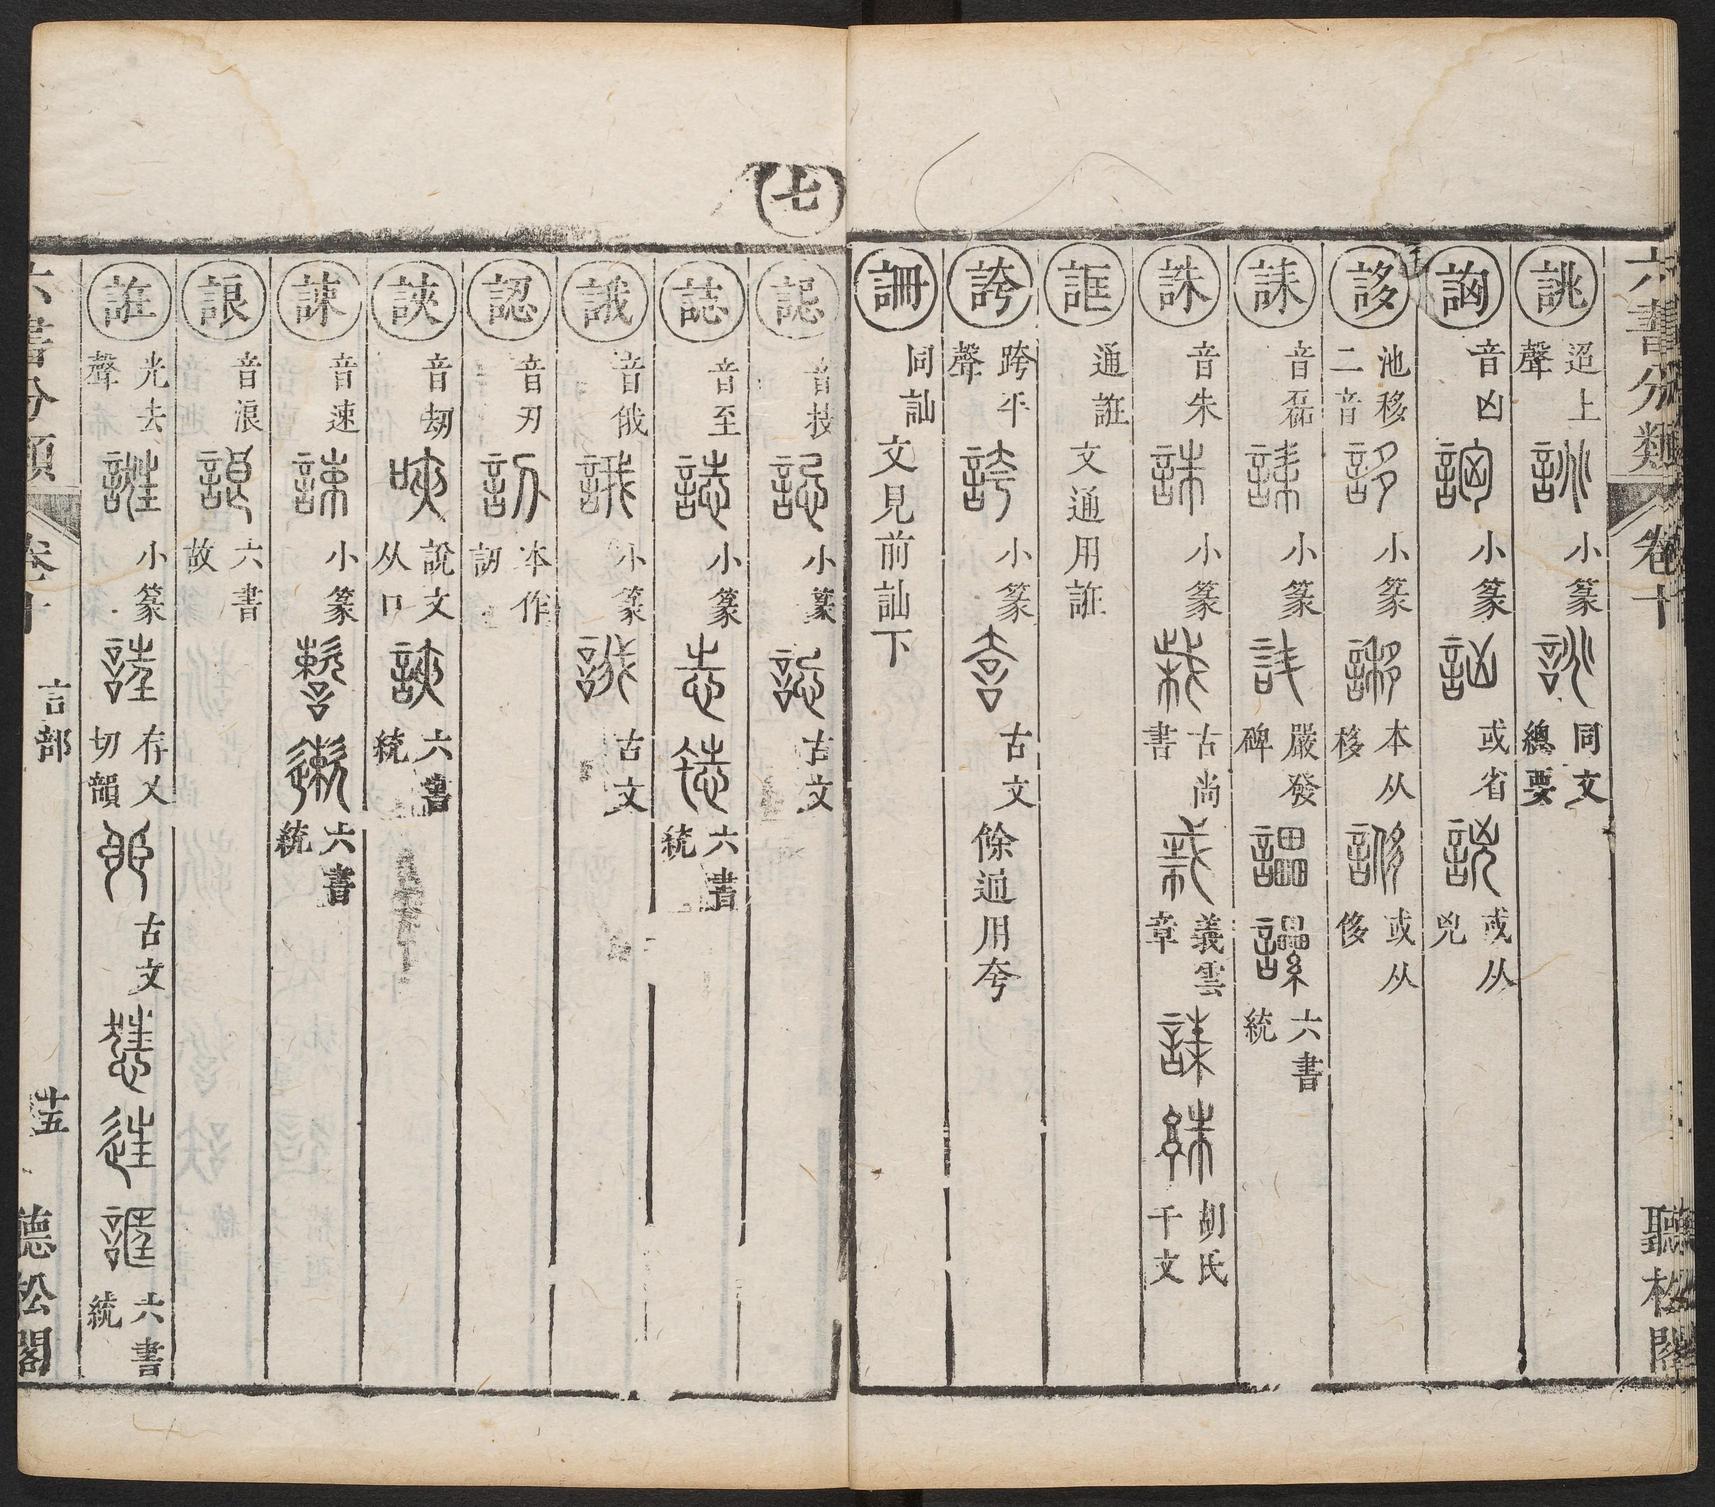 六書分類 卷十 聽松閣
誂 迢上聲 小篆 同文總要
詾 音凶 小篆 或省 或从兇
誃 池移二音 小篆 本从移 或从侈
誄 音磊 小篆 嚴發碑 六書統
誅 音朱 小篆 古尚書 義雲章 胡氏千文
誆 通誑 文通用誑
誇 跨平聲 小篆 古文 餘通用夸
䛹 同訕 文見前訕下
七
誋 音技 小篆 古文
誌 音至 小篆 六書統
誐 音俄 小篆 古文
認 音刃 本作訒
䛟 音劫 說文从口 六書統
諫 音速 小篆 六書統
誏 音浪 六書故
誑 光去聲 小篆 存乂切韻 古文 六書統
六書分類 卷十 言部 十五 聽松閣